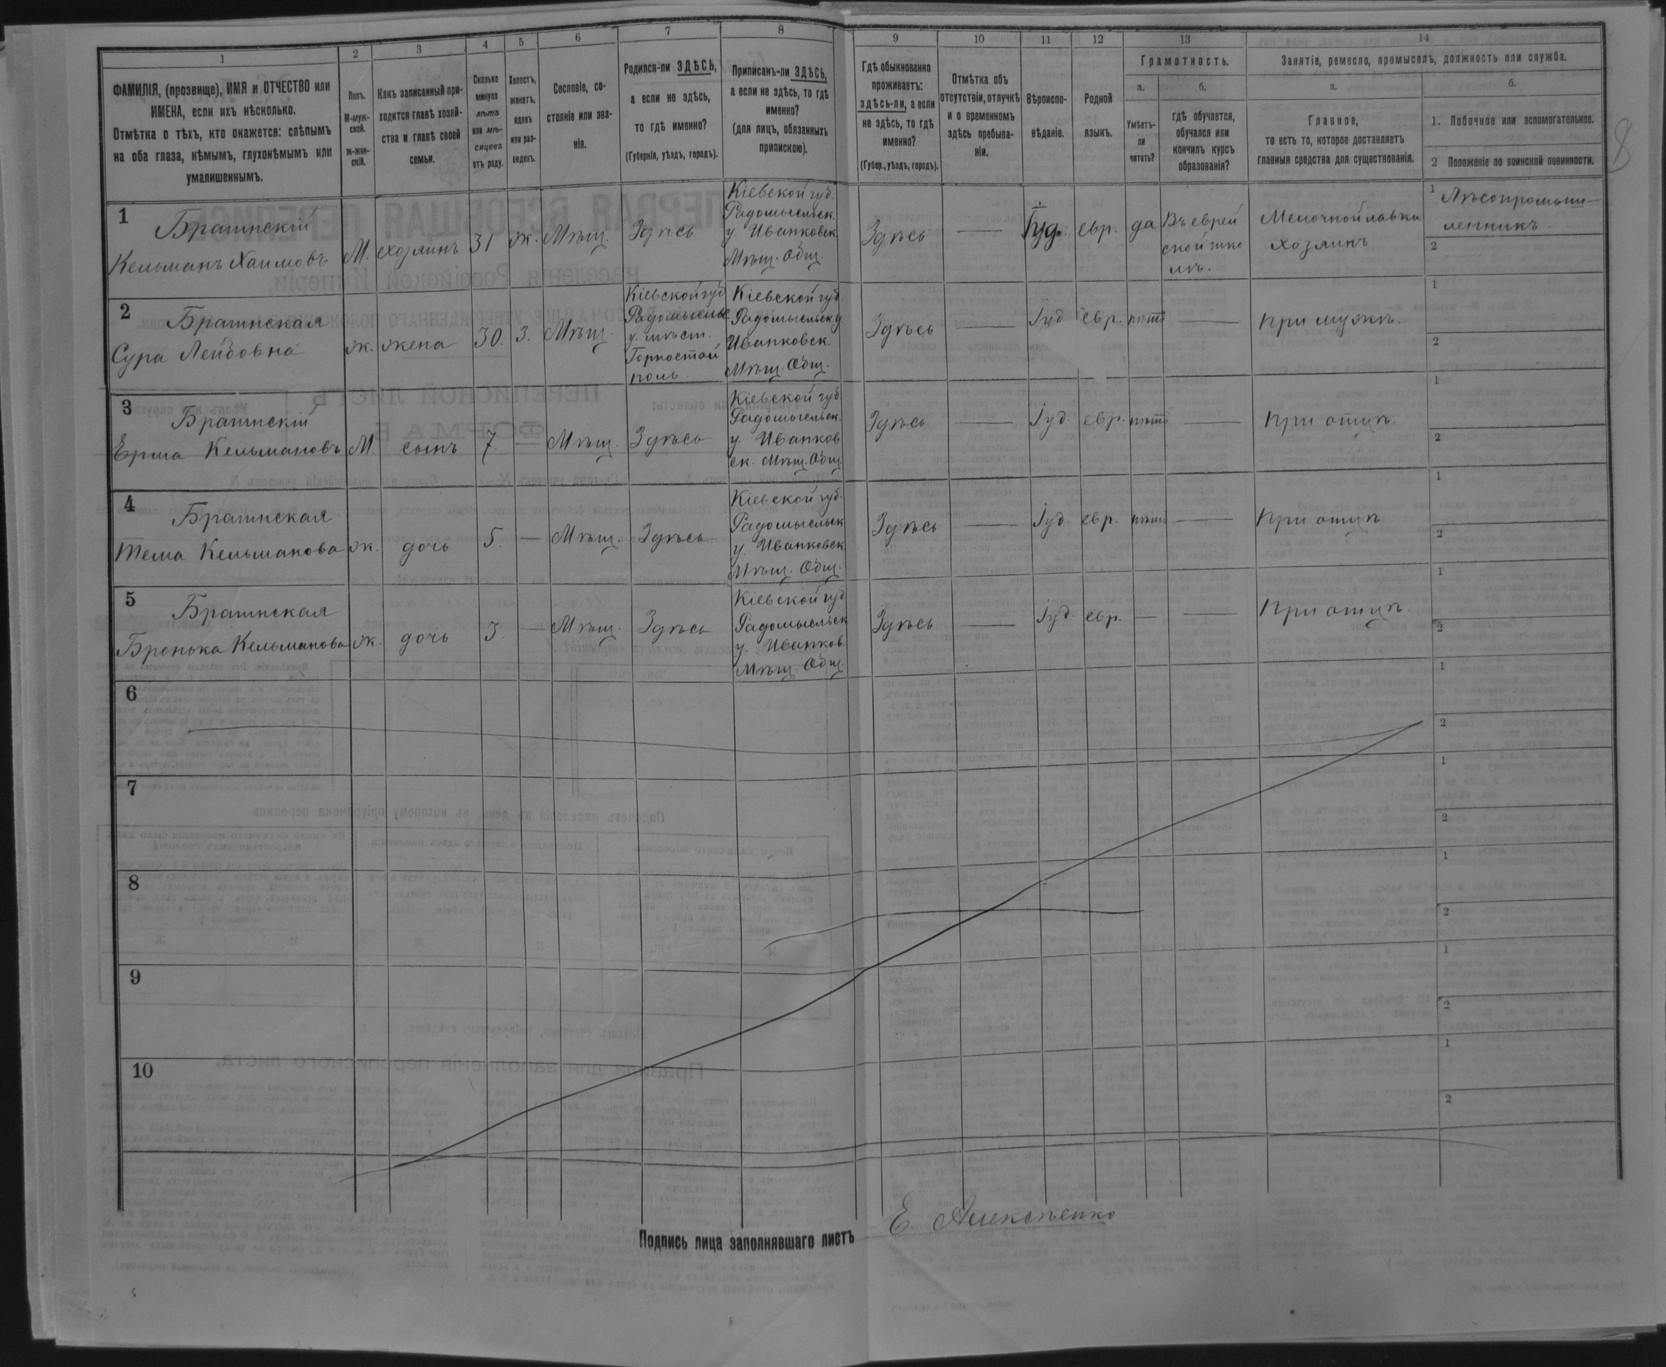 1 2 3 4 5 6 7 8 9 10 11 12 13 14
ФАМИЛІЯ, (прозвище), ИМЯ и ОТЧЕСТВО или
ИМЕНА, если ихъ нѣсколько.
Отмѣтка о тѣхъ, кто окажется: слѣпымъ
на оба глаза, нѣмымъ, глухонѣмымъ или
умалишеннымъ.
Полъ.
М-муж-
ской.
ж-жен-
скій.
Какъ записанный при-
ходится главѣ хозяй-
ства и главѣ своей
семьи.
Сколько
минуло
лѣтъ
или мѣ-
сяцевъ
отъ роду.
Холостъ,
женатъ,
вдовъ
или раз-
веденъ.
Сословіе, со-
стояніе или зва-
ніе.
Родился-ли ЗДѢСЬ,
а если не здѣсь,
то гдѣ именно?
(Губернія, уѣздъ, городъ).
Приписанъ-ли ЗДѢСЬ,
а если не здѣсь, то гдѣ
именно?
(для лицъ, обязанныхъ
припискою).
Гдѣ обыкновенно
проживаетъ:
здѣсь-ли, а если
не здѣсь, то гдѣ
именно?
(Губер., уѣздъ, городъ).
Отмѣтка объ
отсутствіи, отлучкѣ
и о временномъ
здѣсь пребыва-
ніи.
Вѣроиспо-
вѣданіе.
Родной
языкъ.
Грамотность.
а.
Умѣетъ-
ли
читать?
б.
гдѣ обучается,
обучался или
кончилъ курсъ
образованія?
Занятіе, ремесло, промыселъ, должность или служба.
а.
Главное,
то есть то, которое доставляетъ
главныя средства для существованія.
б.
1. Побочное или вспомогательное.
2 Положеніе по воинской повинности.
8
1
Брагинскій
Кельманъ Хаимовъ
М. хозяинъ 31 ж. Мѣщ. Здѣсь
Кіевской губ.
Радомысльск.
у. Иванковск.
Мѣщ. Общ.
Здѣсь — Іуд. евр. да
Въ еврей
ской шко
лѣ.
Мелочной лавки
хозяинъ
1 Лѣсопромыш-
ленникъ
2
2
Брагинская
Сура Лейбовна
ж. жена 30. З. Мѣщ.
Кіевской губ
Радомысльс
у. мѣст.
Горностай
поль.
Кіевской губ
Радомысльск у
Иванковск.
Мѣщ. Общ.
Здѣсь — Іуд евр. нѣтъ — При мужѣ.
1
2
3
Брагинскій
Ерма Кельмановъ
М. сынъ 7. — Мѣщ. Здѣсь
Кіевской губ
Радомысльск.
у. Иванков
ск. Мѣщ. Общ
Здѣсь — Іуд евр. нѣтъ — При отцѣ.
1
2
4
Брагинская
Тема Кельманова
ж. дочь 5. — Мѣщ. Здѣсь
Кіевской губ.
Радомысльск
у. Иванковск.
Мѣщ. Общ.
Здѣсь — Іуд евр. нѣтъ — При отцѣ
1
2
5
Брагинская
Бронька Кельманова
ж. дочь 3 — Мѣщ. Здѣсь
Кіевской губ
Радомысльск
у. Иванков.
Мѣщ Общ.
Здѣсь — Іуд евр. — — При отцѣ.
1
2
6
1
2
7
1
2
8
1
2
9
1
2
10
1
2
Подпись лица заполнявшаго листъ